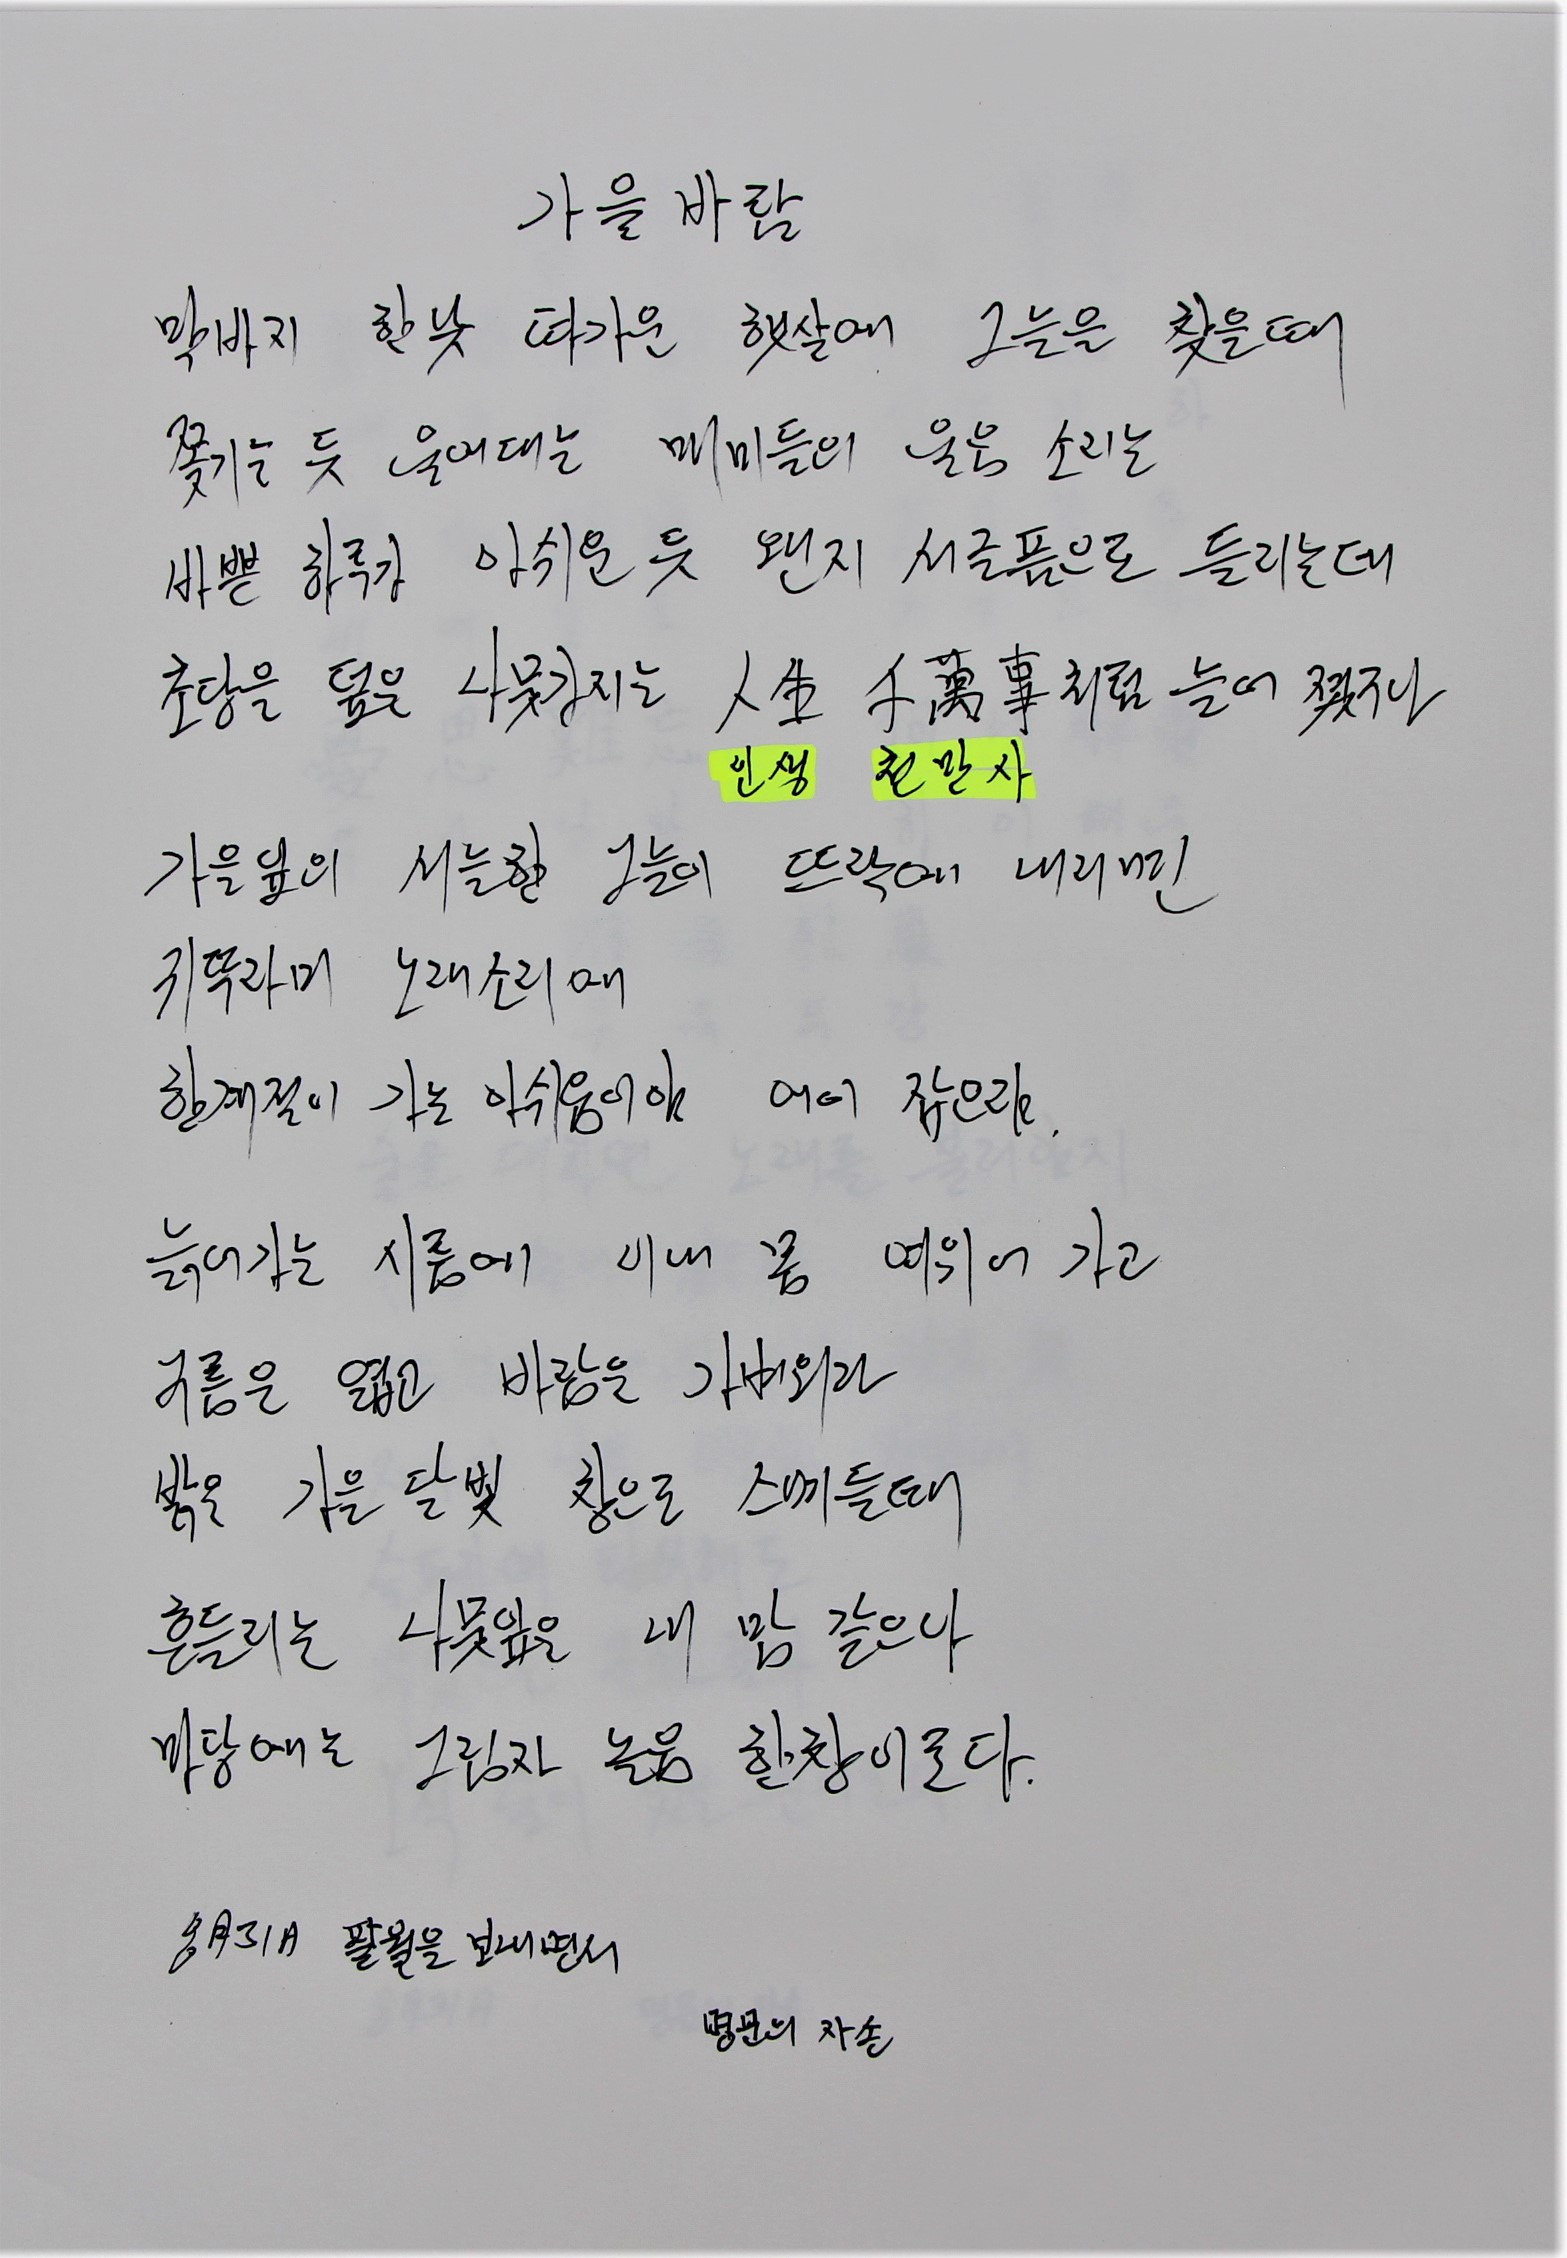 가을 바람
막바지 한낮 따가운 햇살에 그늘을 찾을때
쫓기는 듯 울어대는 매미들의 울음 소리는
바쁜 하루가 아쉬운 듯 왠지 서글픔으로 들리는데
초당을 덮은 나뭇가지는 人生 千萬事처럼 늘어 졌구나
인생 천만사
가을잎의 서늘한 그늘이 뜨락에 내리면
귀뚜라미 노래소리에
한계절이 가는 아쉬움이야 어이 잡으랴.
늙어가는 시름에 이내 몸 여위어 가고
구름은 엷고 바람은 가벼워라
밝은 가을 달빛 창으로 스며들때
흔들리는 나뭇잎은 내 맘 같으나
마당에는 그림자 놀음 한창이로다.
8月31日 팔월을 보내면서
명문의 자손